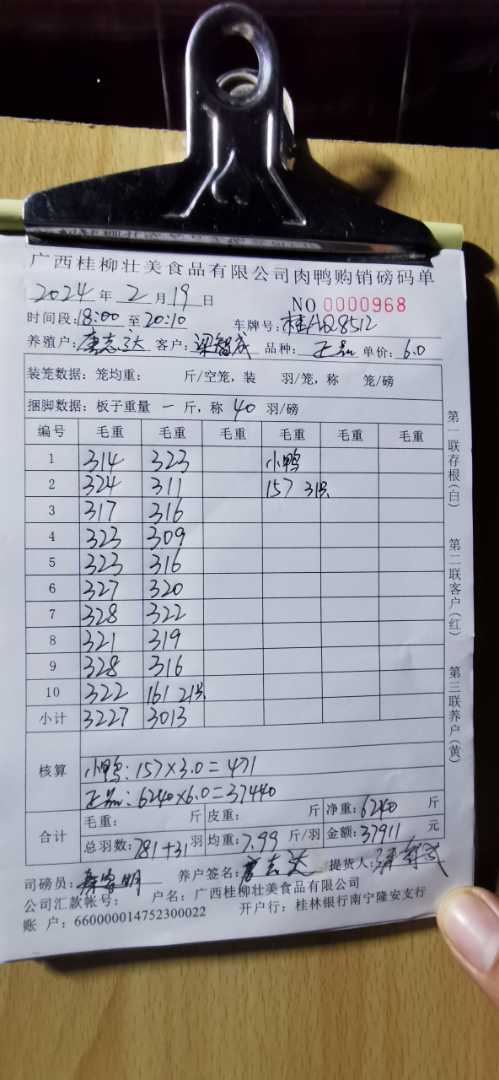 广西桂柳壮美食品有限公司肉鸭购销磅码单
2024 年 2 月 19 日 NO 0000968
时间段:18:00 至 20:10 车牌号:桂AQ8512
养殖户:唐志达 客户:梁智成 品种:正品 单价:6.0
装笼数据: 笼均重: 斤/空笼, 装 羽/笼, 称 笼/磅
捆脚数据: 板子重量 一 斤, 称 40 羽/磅
编号 毛重 毛重 毛重 毛重 毛重 毛重
1 314 323 小鸭
2 324 311 157 31只
3 317 316
4 323 309
5 323 316
6 327 320
7 328 322
8 321 319
9 328 316
10 322 161 21只
小计 3227 3013
核算 小鸭: 157×3.0=471
正品: 6240×6.0=37440
合计 毛重: 斤 皮重: 斤 净重: 6240 斤
总羽数: 781+31 羽 均重: 7.99 斤/羽 金额: 37911 元
司磅员: 养户签名: 唐志达 提货人:
公司汇款帐号: 户名: 广西桂柳壮美食品有限公司
账 户: 660000014752300022 开户行: 桂林银行南宁隆安支行
第一联存根(白)
第二联客户(红)
第三联养户(黄)